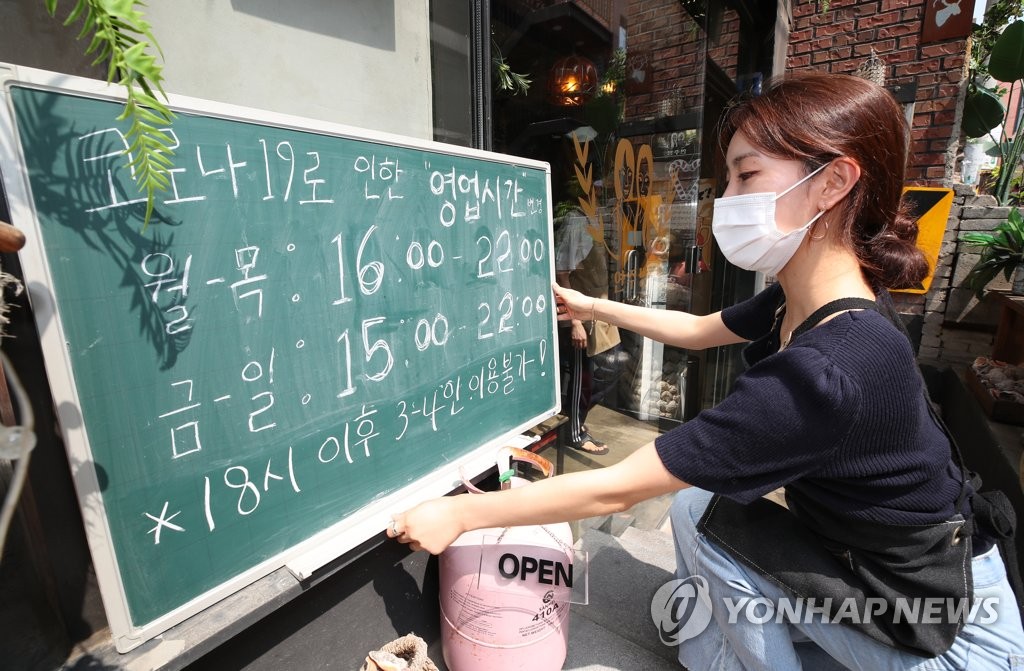 코로나19로 인한 "영업시간" 변경
월-목 : 16:00 - 22:00
금-일 : 15:00 - 22:00
* 18시 이후 3-4인 이용불가!
OPEN
410A
YONHAP NEWS